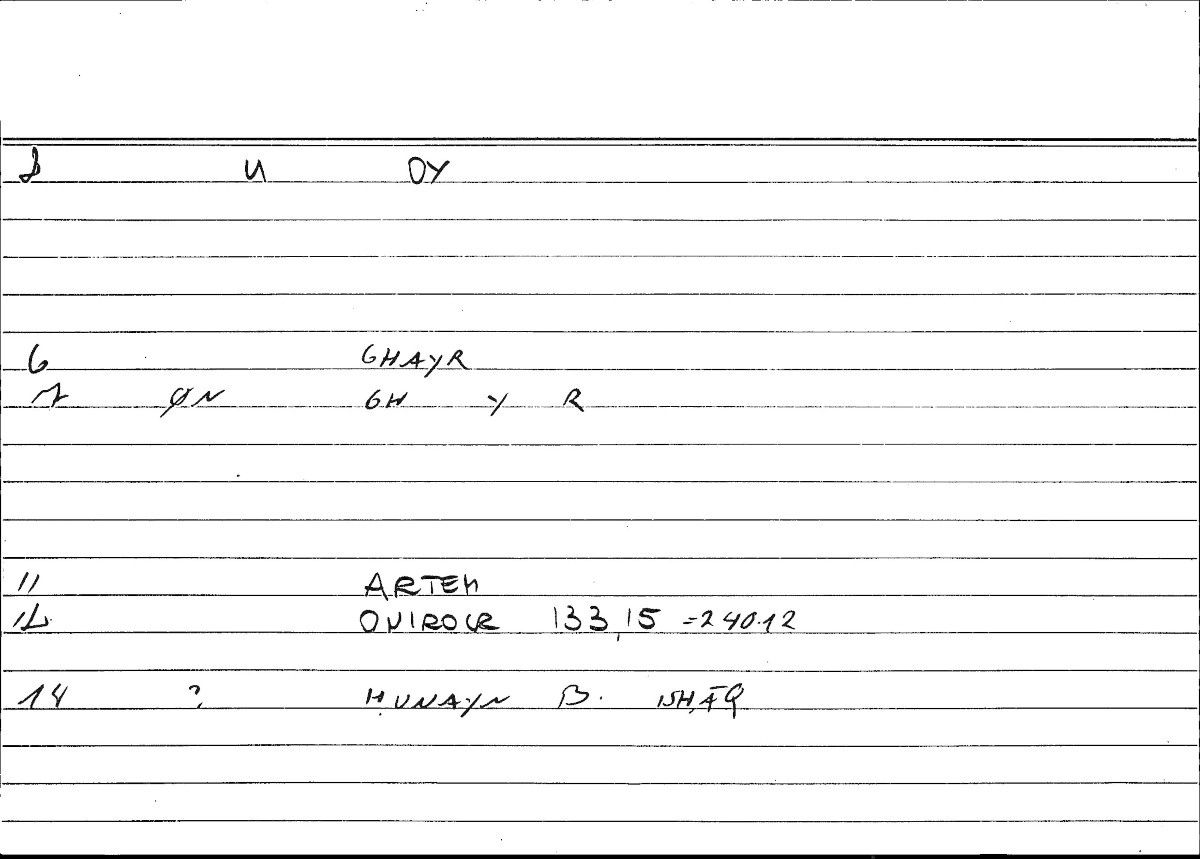 2 U OY
6 GHAYR
7 ØN GH Y R
11 ARTEM
12 ONIROCR 133,15 =240.12
14 ? ḤUNAYN B. ISḤĀQ